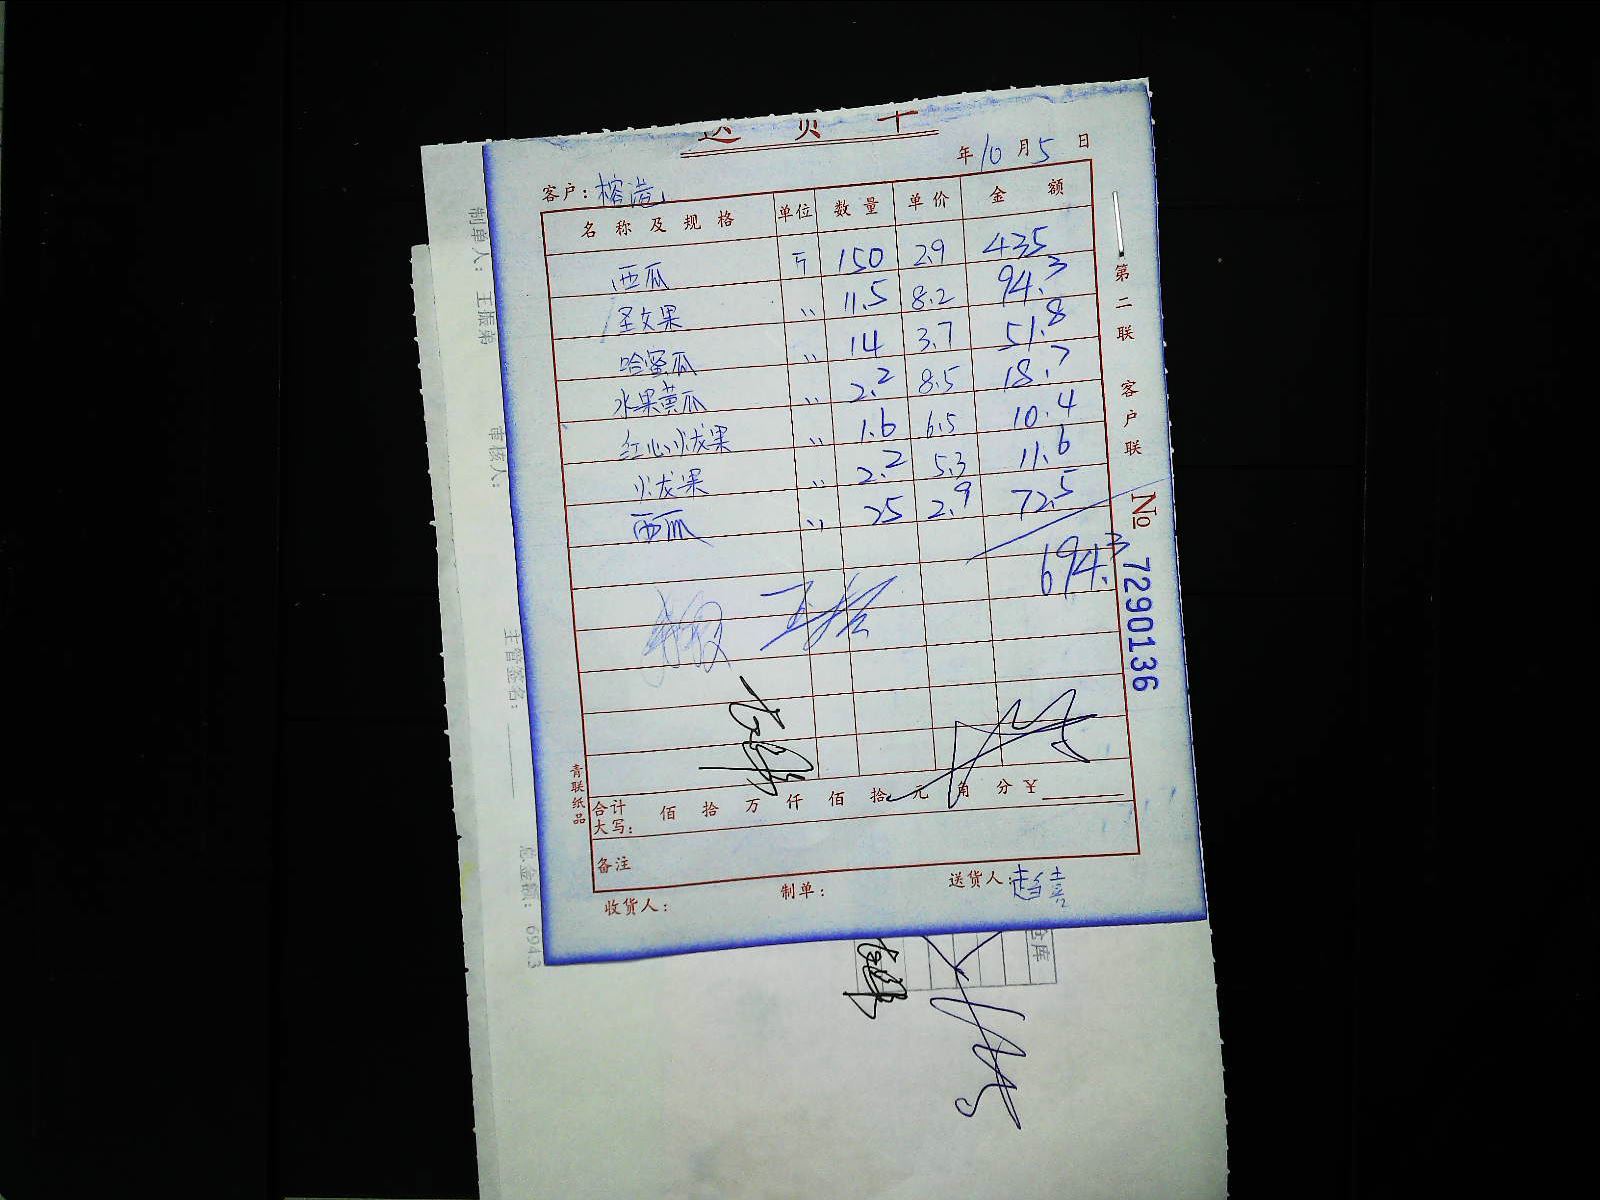 送货单
年10月5日
客户:榕港
名称及规格 单位 数量 单价 金额
西瓜 斤 150 2.9 435
圣女果 〃 11.5 8.2 94.3
哈蜜瓜 〃 14 3.7 51.8
水果黄瓜 〃 2.2 8.5 18.7
红心火龙果 〃 1.6 6.5 10.4
火龙果 〃 2.2 5.3 11.6
西瓜 〃 25 2.9 72.5
694.3
合计大写: 佰 拾 万 仟 佰 拾 元 角 分 ¥
备注
收货人: 制单: 送货人:赵喜
青联纸品
第二联 客户联
№ 7290136
制单人: 王振弟
审核人:
主管签名:
总金额: 694.3
仓库